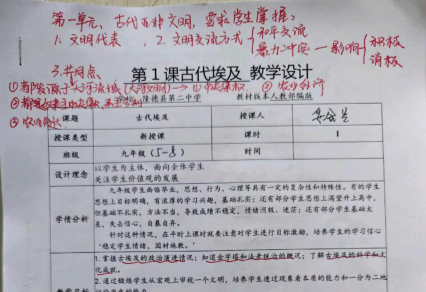 第一单元、古代亚非文明,要求学生掌握:
1.文明代表、2.文明交流方式 和平交流
暴力冲突—影响 积极
消极
3.共同点、
第1课古代埃及 教学设计
①都发源于大河流域
隆德县第二中学 教材版本人教部编版
③农业
课题 古代埃及 授课教师
授课类型 新授课 课时 1
班级 九年级(5-8) 时间
设计理念 以学生为主体,面向全体学生
关注学生价值观的发展
学情分析 九年级学生面临毕业,思想、行为、心理等具有一定的复杂性和特殊性。有的学生
思想上目标明确,有浓厚的学习兴趣,基础扎实;还有部分学生思想上渴望升上高中,
但基础不扎实,方法不当,导致成绩不稳定,情绪消极、迷茫;还有部分学生基础太
差,失去信心,自暴自弃。
针对这种情况,在平时上课时就要注意对学生进行目标激励,培养学生的学习信心
“稳定学生情绪,因材施教。”
1.掌握古埃及的政治演进情况;知道金字塔和法老统治的概况;了解古埃及的科学和文
化成就。
2.通过锻炼学生从宏观上审视一个文明,培养学生透过现象看本质的能力和一分为二地